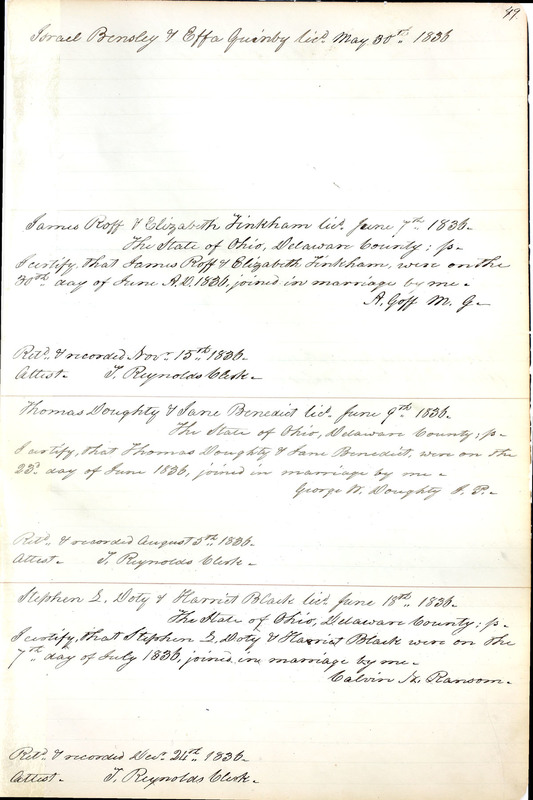 49.
Israel Bensley & Effa Quinby lic.d May 30th 1836
James Roff & Elizabeth Finkham lic.d June 7th 1836.
The State of Ohio, Delaware County; ss-
I certify, that James Roff & Elizabeth Finkham, were on the
30th day of June A.D. 1836, joined in marriage by me-
A. Goff M. G.
Ret.d & recorded Nov.r 15th 1836-
Attest- T. Reynolds Clerk-
Thomas Doughty & Jane Benedict lic.d June 9th 1836-
The State of Ohio, Delaware County; ss-
I certify, that Thomas Doughty & Jane Benedict, were on the
23d day of June 1836, joined in marriage by me-
George W. Doughty J. P.-
Ret.d & recorded August 5th 1836-
Attest- T. Reynolds Clerk-
Stephen G. Doty & Harriet Black lic.d June 18th 1836-
The State of Ohio, Delaware County; ss-
I certify, that Stephen G. Doty & Harriet Black were on the
7th day of July 1836, joined in marriage by me-
Calvin N. Ransom-
Ret.d & recorded Dec.r 24th 1836-
Attest- T. Reynolds Clerk-